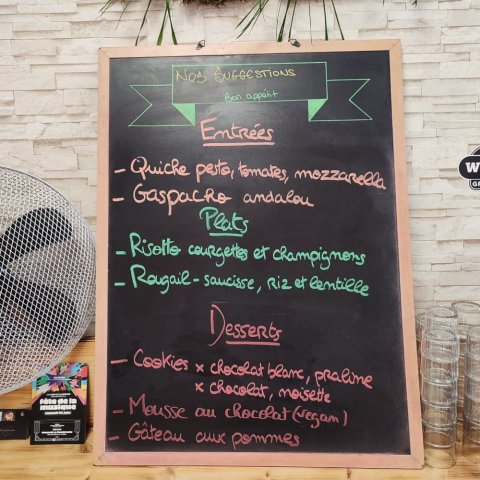 NOS SUGGESTIONS
Bon appétit
Entrées
- Quiche pesto, tomates, mozzarella
- Gaspacho andalou
Plats
- Risotto courgettes et champignons
- Rougail-saucisse, riz et lentille
Desserts
- Cookies x chocolat blanc, praline
x chocolat, noisette
- Mousse au chocolat (vegan)
- Gâteau aux pommes
Fête de la
musique